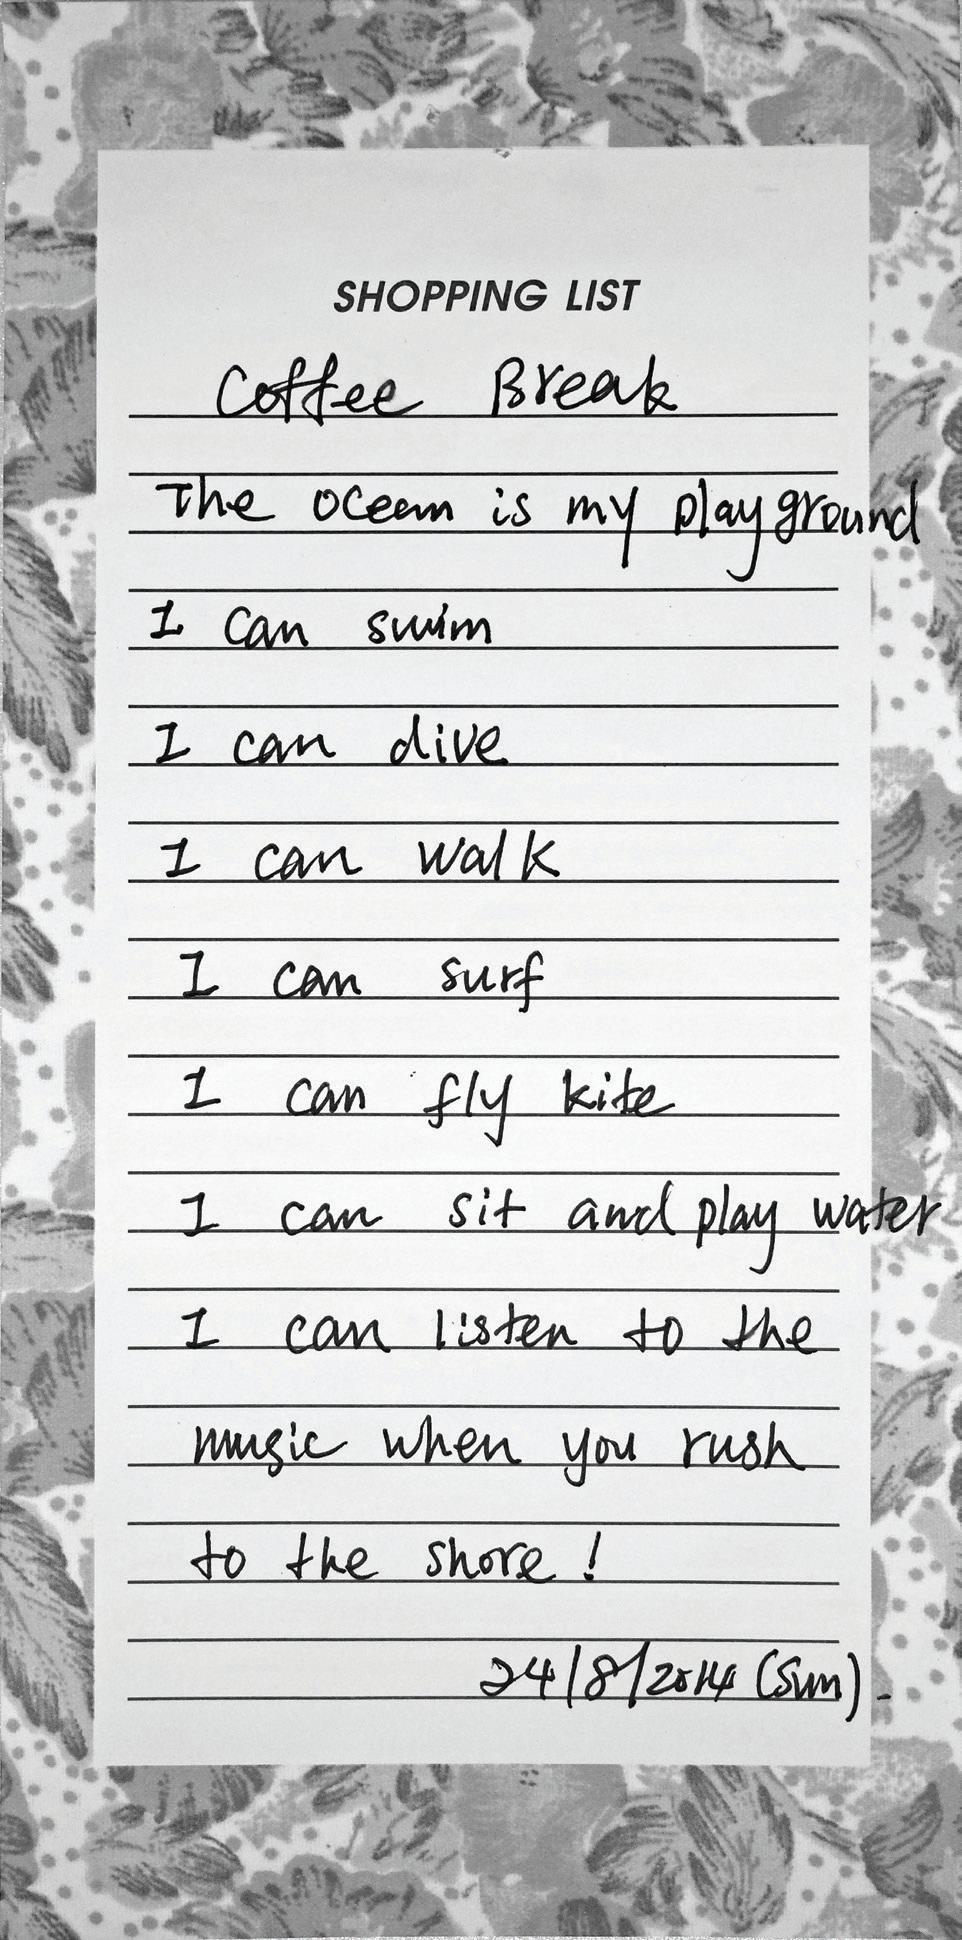 SHOPPING LIST
Coffee Break
The ocean is my playground
I can swim
I can dive
I can walk
I can surf
I can fly kite
I can sit and play water
I can listen to the
music when you rush
to the shore!
24/8/2014 (Sun).